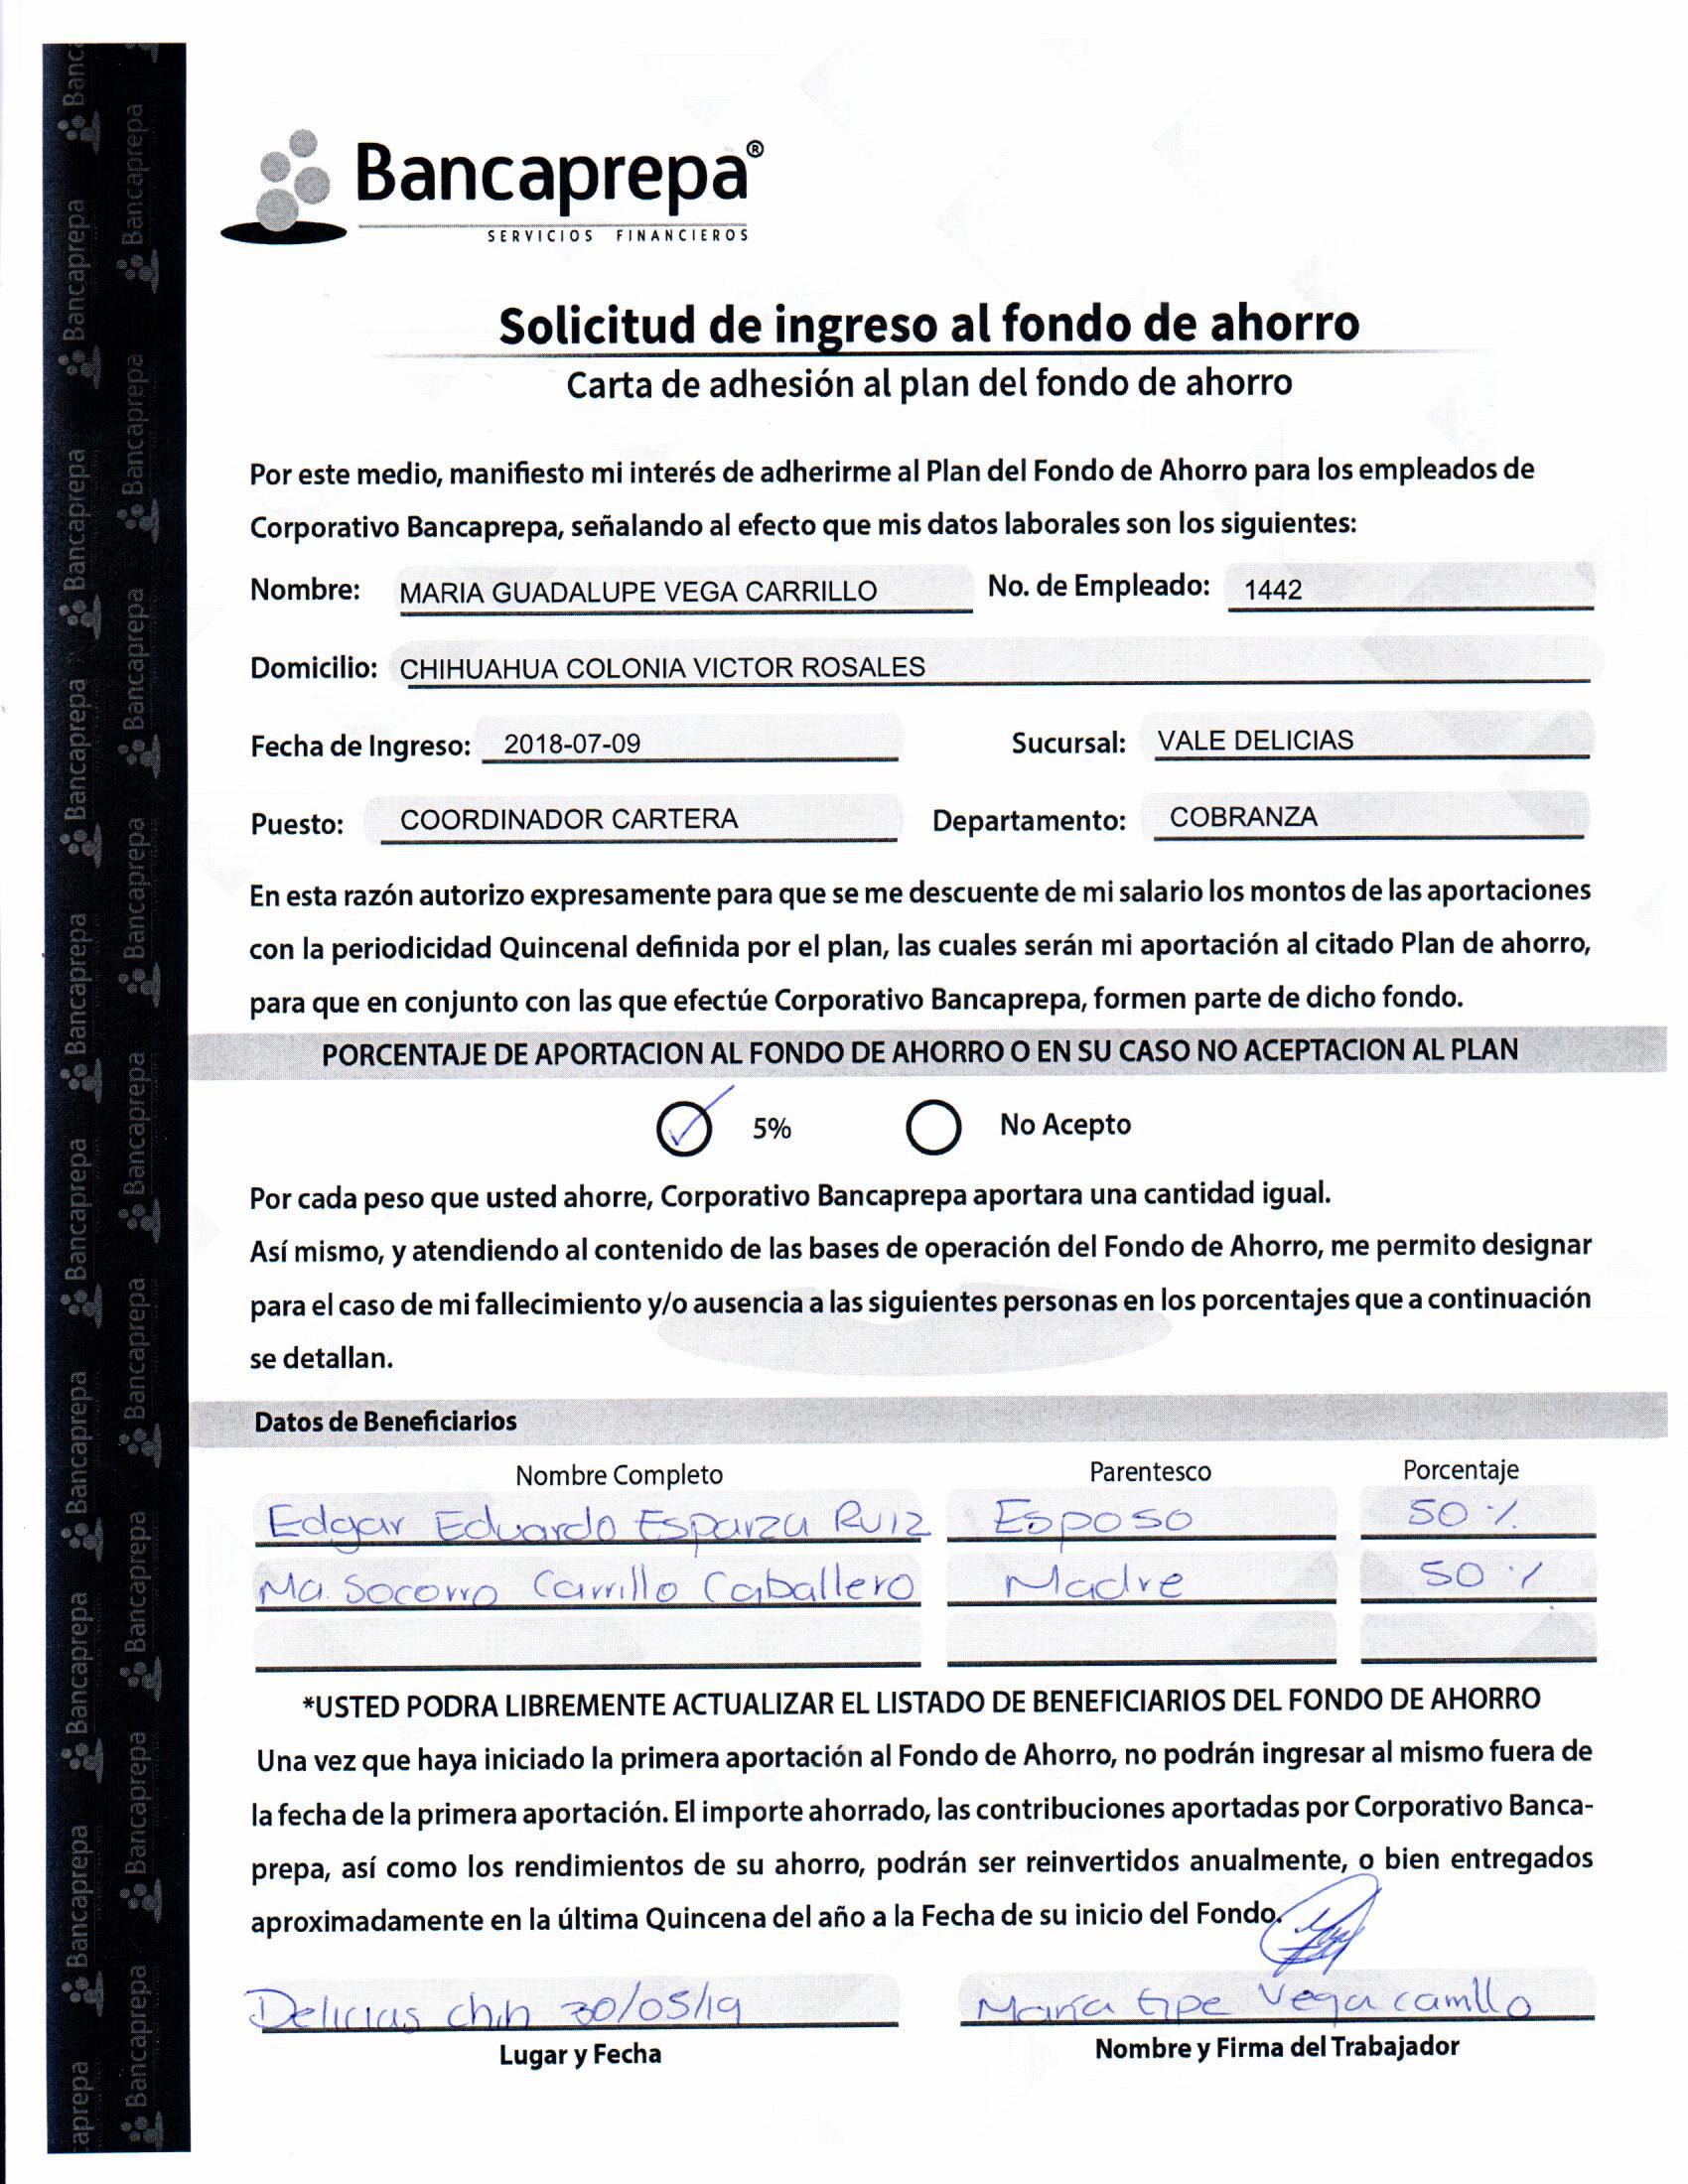 Bancaprepa®
SERVICIOS FINANCIEROS
Solicitud de ingreso al fondo de ahorro
Carta de adhesión al plan del fondo de ahorro
Por este medio, manifiesto mi interés de adherirme al Plan del Fondo de Ahorro para los empleados de
Corporativo Bancaprepa, señalando al efecto que mis datos laborales son los siguientes:
Nombre: MARIA GUADALUPE VEGA CARRILLO No. de Empleado: 1442
Domicilio: CHIHUAHUA COLONIA VICTOR ROSALES
Fecha de Ingreso: 2018-07-09 Sucursal: VALE DELICIAS
Puesto: COORDINADOR CARTERA Departamento: COBRANZA
En esta razón autorizo expresamente para que se me descuente de mi salario los montos de las aportaciones
con la periodicidad Quincenal definida por el plan, las cuales serán mi aportación al citado Plan de ahorro,
para que en conjunto con las que efectúe Corporativo Bancaprepa, formen parte de dicho fondo.
PORCENTAJE DE APORTACION AL FONDO DE AHORRO O EN SU CASO NO ACEPTACION AL PLAN
5% No Acepto
Por cada peso que usted ahorre, Corporativo Bancaprepa aportara una cantidad igual.
Así mismo, y atendiendo al contenido de las bases de operación del Fondo de Ahorro, me permito designar
para el caso de mi fallecimiento y/o ausencia a las siguientes personas en los porcentajes que a continuación
se detallan.
Datos de Beneficiarios
Nombre Completo Parentesco Porcentaje
Edgar Eduardo Esparza Ruiz Esposo 50 %
Ma. Socorro Carrillo Caballero Madre 50 %
*USTED PODRA LIBREMENTE ACTUALIZAR EL LISTADO DE BENEFICIARIOS DEL FONDO DE AHORRO
Una vez que haya iniciado la primera aportación al Fondo de Ahorro, no podrán ingresar al mismo fuera de
la fecha de la primera aportación. El importe ahorrado, las contribuciones aportadas por Corporativo Banca-
prepa, así como los rendimientos de su ahorro, podrán ser reinvertidos anualmente, o bien entregados
aproximadamente en la última Quincena del año a la Fecha de su inicio del Fondo.
Delicias chih 30/05/19 María Gpe Vega carrillo
Lugar y Fecha Nombre y Firma del Trabajador